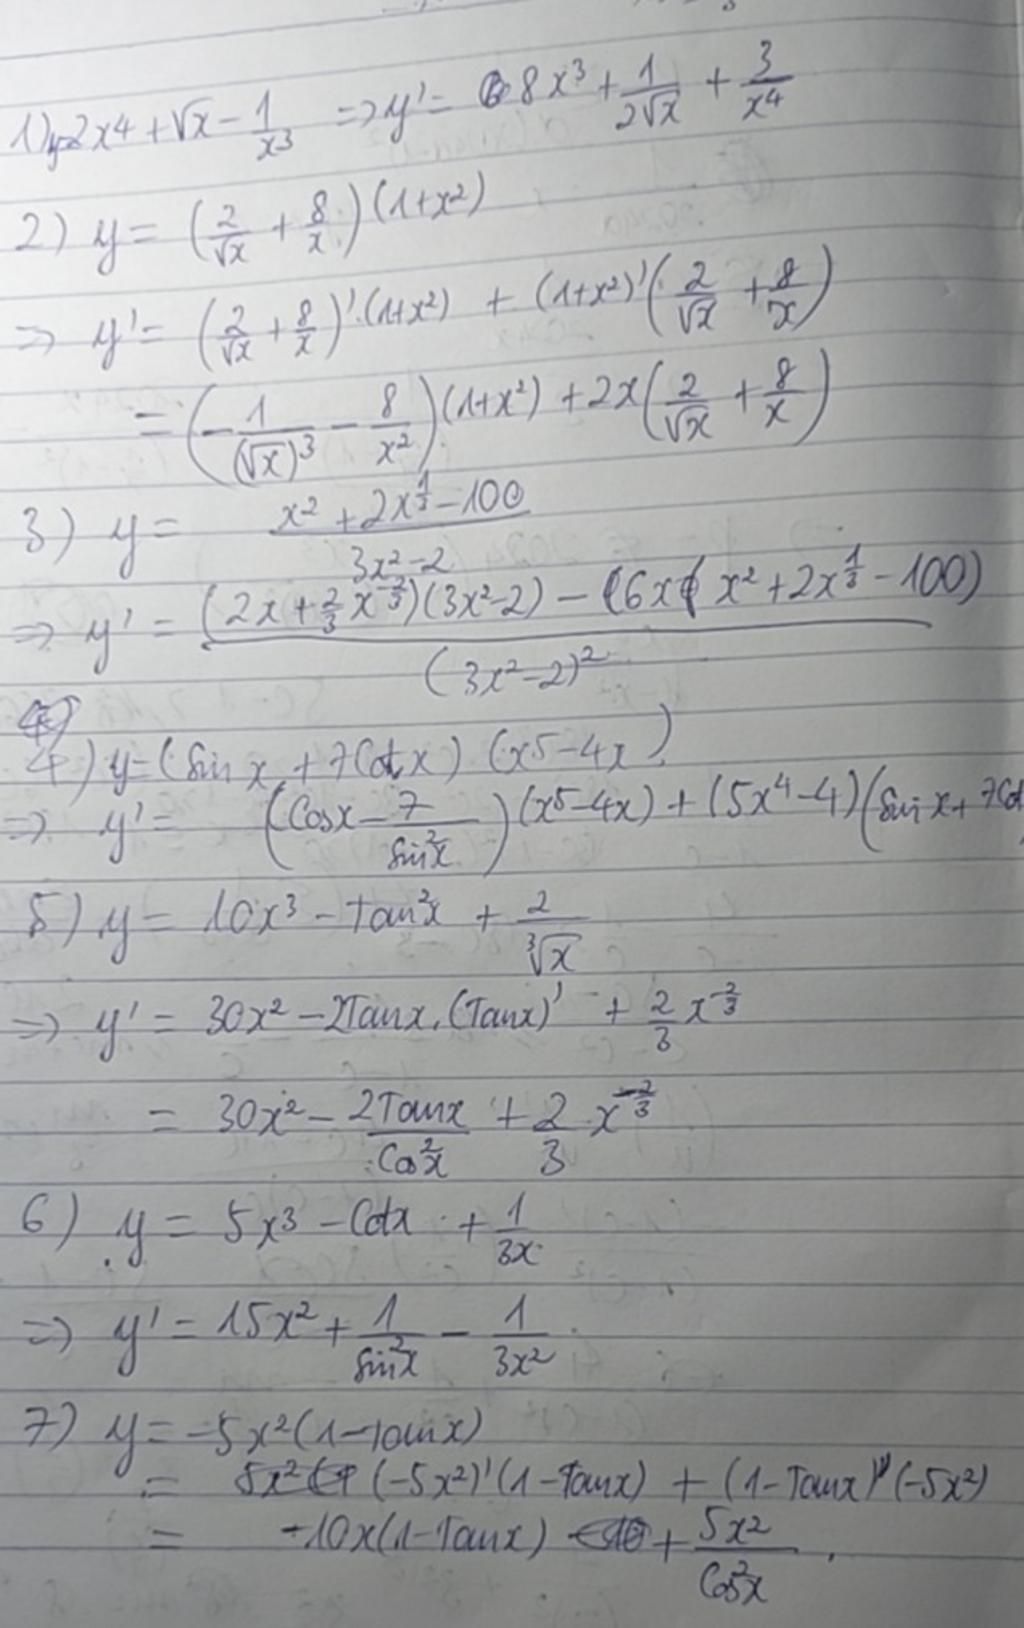 1) y=2x⁴ + √x − 1/x³ => y' = 8x³ + 1/(2√x) + 3/x⁴
2) y = (2/√x + 8/x)(1+x²)
=> y' = (2/√x + 8/x)'.(1+x²) + (1+x²)'(2/√x + 8/x)
= (−1/(√x)³ − 8/x²)(1+x²) + 2x(2/√x + 8/x)
3) y = (x² + 2x^(1/3) − 100)/(3x²−2)
=> y' = ((2x + 2/3 x^(−2/3))(3x²−2) − (6x( x² + 2x^(1/3) − 100))/(3x²−2)²
4) y = (sin x + 7Cotx) (x⁵ − 4x)
=> y' = (Cosx − 7/sin²x)(x⁵−4x) + (5x⁴−4)(sin x + 7Cot
5) y = 10x³ − tan²x + 2/∛x
=> y' = 30x² − 2Tanx.(Tanx)' + 2/3 x^(−2/3)
= 30x² − 2Tanx/Cos²x + 2/3 x^(−2/3)
6) y = 5x³ − Cotx + 1/3x
=> y' = 15x² + 1/sin²x − 1/3x²
7) y = −5x²(1−tanx)
= (−5x²)'(1−Tanx) + (1−Tanx)'(−5x²)
= −10x(1−Tanx) + 5x²/Cos²x.